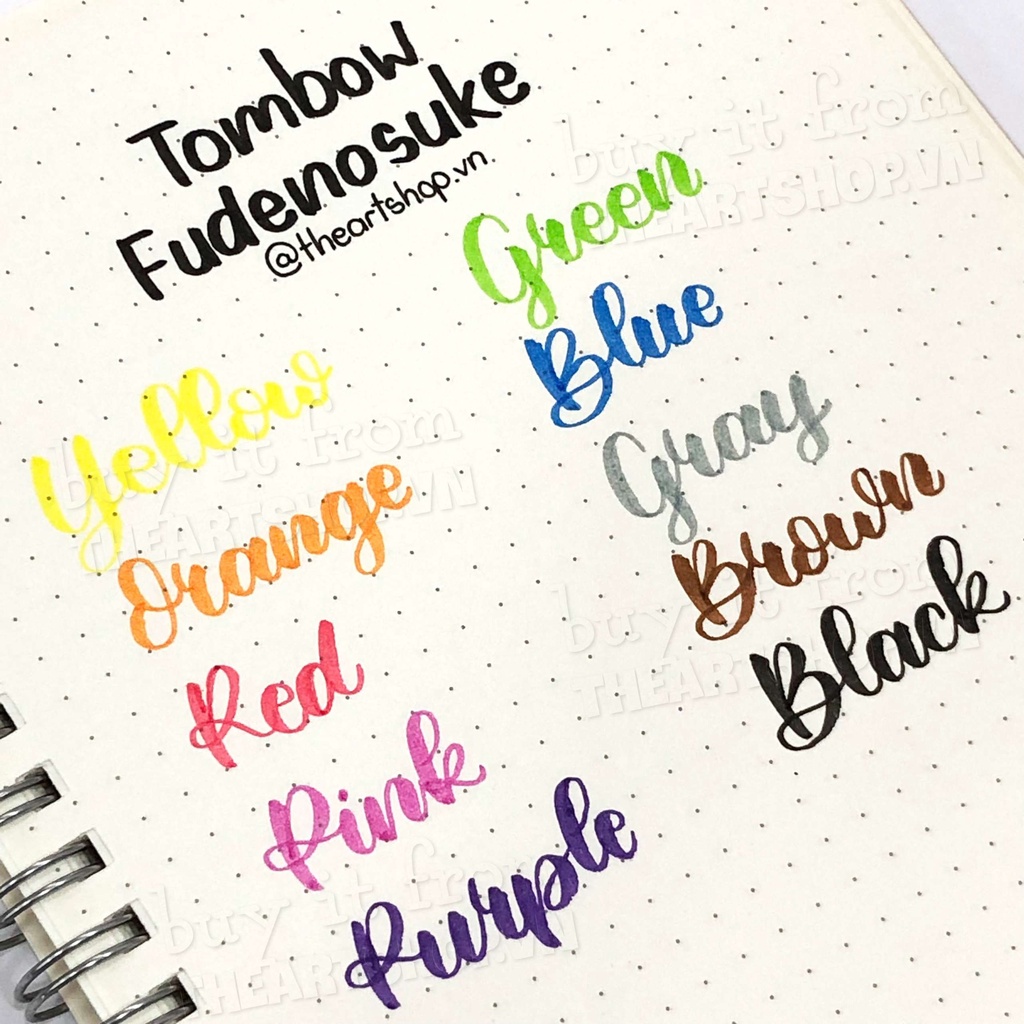 Tombow
Fudenosuke
@theartshop.vn
Yellow
Orange
Red
Pink
Purple
Green
Blue
Gray
Brown
Black
buy it from
THEARTSHOP.VN
buy it from
THEARTSHOP.VN
buy it from
THEARTSHOP.VN
buy it from
THEARTSHOP.VN